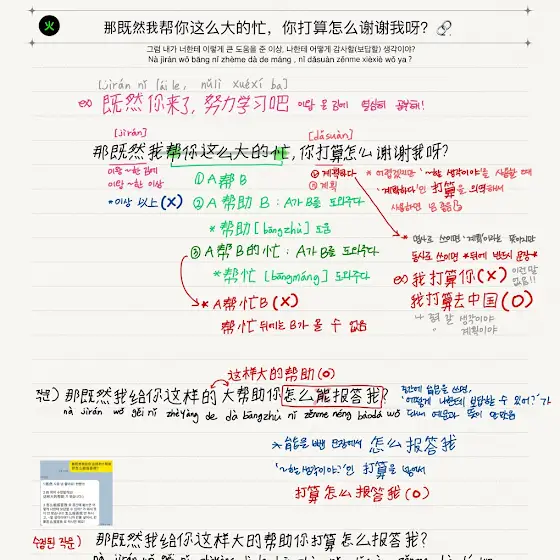 火 那既然我帮你这么大的忙，你打算怎么谢谢我呀?
그럼 내가 너한테 이렇게 큰 도움을 준 이상, 나한테 어떻게 감사할(보답할) 생각이야?
Nà jìrán wǒ bāng nǐ zhème dà de máng , nǐ dǎsuàn zěnme xièxiè wǒ ya ?
[jìrán nǐ lái le, nǔlì xuéxí ba]
ex) 既然 你来了, 努力学习吧 이왕 온 김에 열심히 공부해!
[jìrán] [dǎsuàn]
那既然我帮你这么大的忙, 你打算怎么谢谢我呀?
이왕 ~한 김에
이왕 ~한 이상
*이상 以上 (X)
① A 帮 B
② A 帮助 B : A가 B를 도와주다
* 帮助 [bāngzhù] 도움
③ A 帮 B 的忙 : A가 B를 도와주다
* 帮忙 [bāngmáng] 도와주다
* A 帮忙 B (X)
帮忙 뒤에는 B가 올 수 없음
① 계획하다
② 계획
'~한 생각이야'를 사용할 때
'계획하다'인 打算을 의역해서
동사로 쓰이면 *뒤에 반드시 문장*
ex) 我打算你 (X) 이런 말 없음!!
我打算去中国 (O)
생각이야
계획이야
这样大的帮助 (O)
작문) 那既然我给你这样的 大帮助你怎么能报答我?
nà jìrán wǒ gěi nǐ zhèyàng de dà bāngzhù nǐ zěnme néng bàodá wǒ
'어떻게 나한테 보답할 수 있어?'가
*能을 뺀 문장에서 怎么 报答我
'~한 생각이야?'인 打算을 넣어서
打算 怎么 报答我 (O)
수정된 작문) 那既然我给你这样大的帮助你打算怎么报答我?